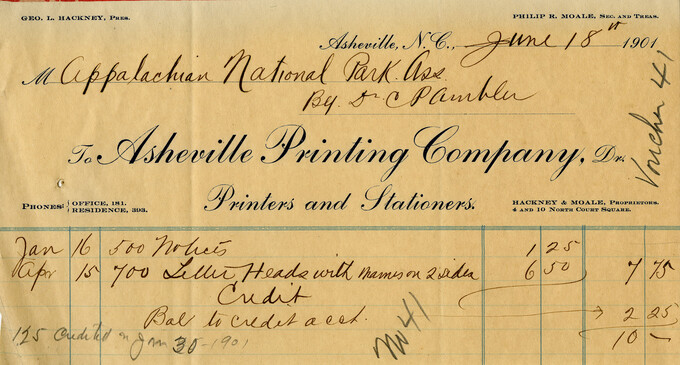 GEO. L. HACKNEY, PRES.
PHILIP R. MOALE, SEC. AND TREAS.
Asheville, N.C., June 18th 1901
M Appalachian National Park Ass.
By Dr C P Ambler
Voucher 41
To Asheville Printing Company, Dr.
Printers and Stationers.
PHONES: OFFICE, 181. RESIDENCE, 393.
HACKNEY & MOALE, PROPRIETORS.
4 AND 10 NORTH COURT SQUARE.
Jan 16 500 Notices 1 25
Apr 15 700 Letter Heads with names on 2 sides 6 50 7 75
Credit
Bal to credit acct. 2 25
10 -
125 Credited on Jan 30-1901
No 41